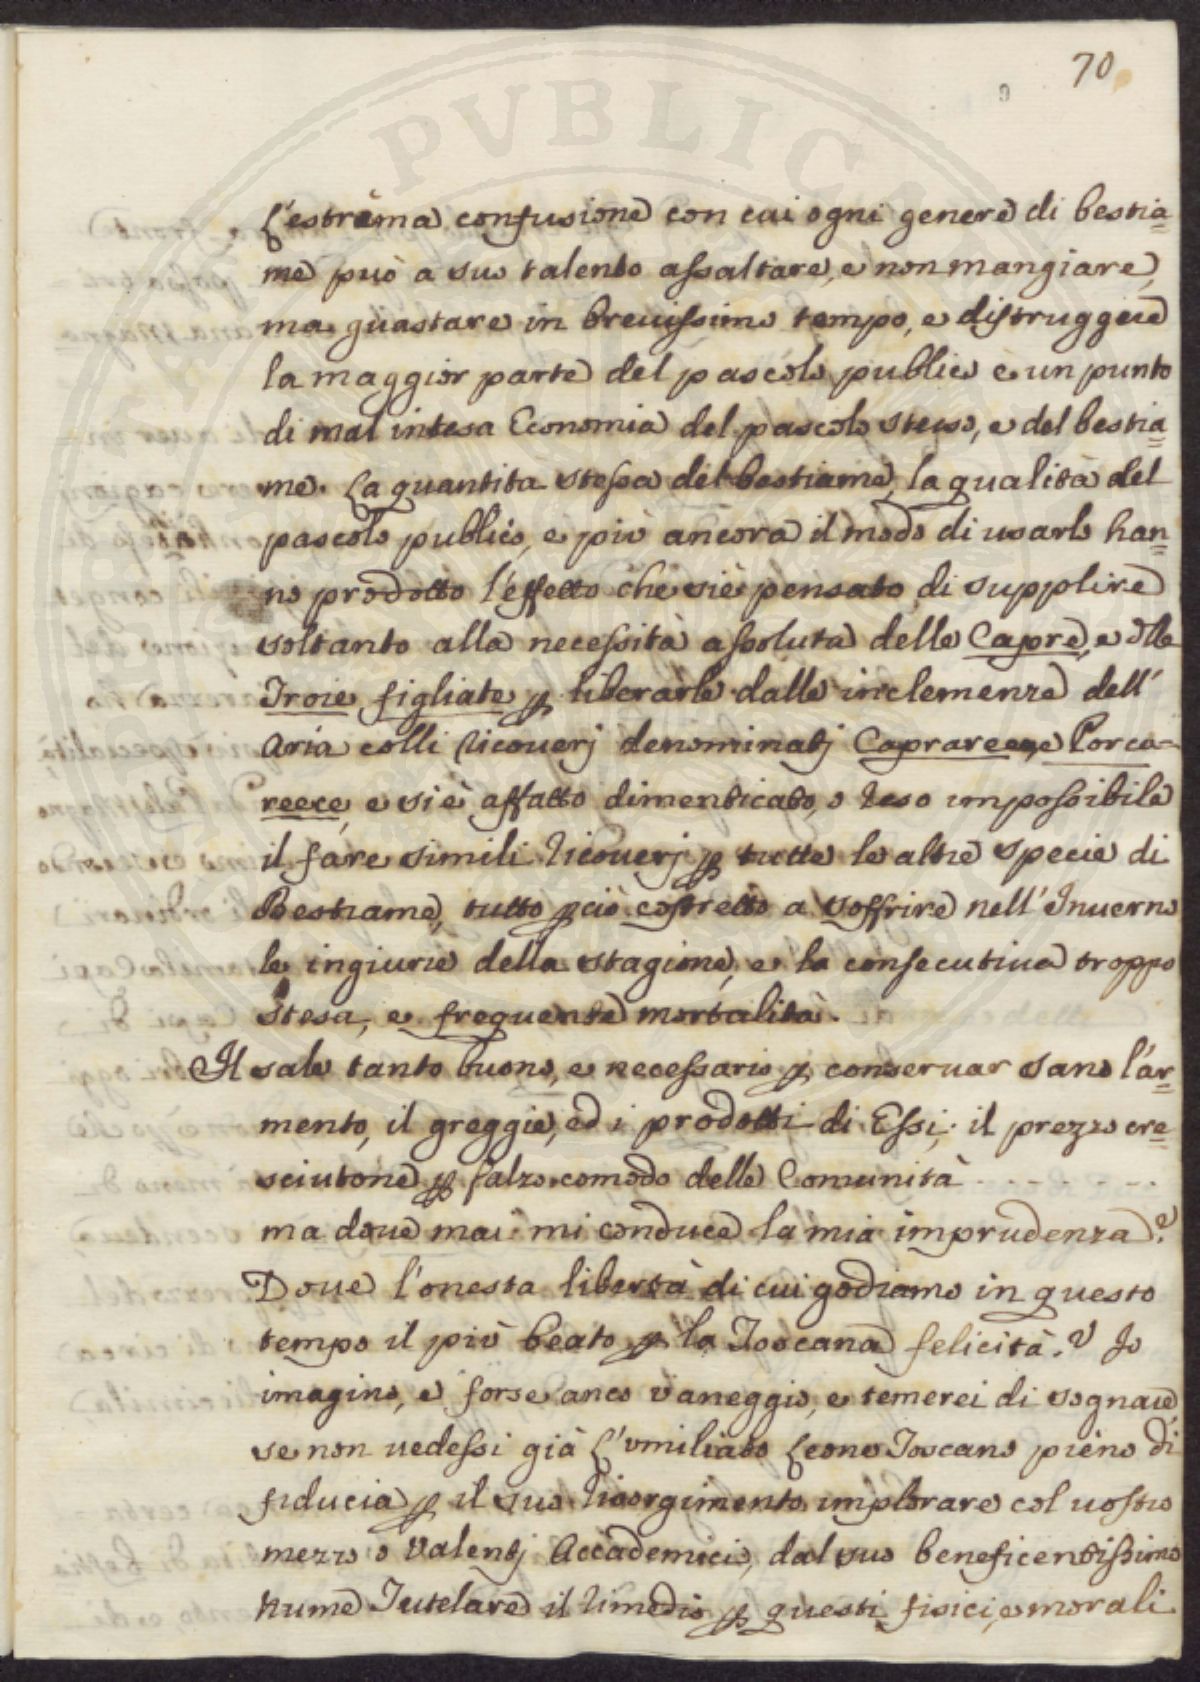 70
PVBLICA
L'estrema confusione con cui ogni genere di bestia=
me può a suo talento assaltare, e non mangiare,
ma guastare in breuissimo tempo, e distruggere
la maggior parte del pascolo publico è un punto
di mal intesa Economia del pascolo stesso, e del bestia=
me. La quantita stessa del bestiame, la qualità del
pascolo publico, e più ancora il modo di usarlo han=
no prodotto l'effetto che si è pensato di supplire
soltanto alla necessità assoluta delle Capre, e dlle
Troie figliate p liberarle dalle inclemenze dell'
aria colli ricouerj denominatj Caprarecce, e Porca=
recce, e si è affatto dimenticato, o reso impossibile
il fare simili ricouerj p tutte le altre specie di
Bestiame, tutto pciò costretto a soffrire nell'Inuerno
le ingiurie della stagione, e la consecutiua troppo
stesa, e frequente mortalità.
Il sale tanto buono, e necessario p conseruar sano l'ar=
mento, il greggie, ed i prodotti di Essi, il prezzo cre=
sciutone p falzo comodo delle Comunità . . . . . . .
ma doue mai mi conduce la mia imprudenza?
Doue l'onesta libertà di cui godiamo in questo
tempo il più beato p la Toscana felicità? Io
imagino, e forse anco vaneggio, e temerei di sognare,
se non uedessi già L'vmiliato Leone Toscano pieno di
fiducia p il suo risorgimento implorare col uostro
mezzo o Valentj Accademici, dal suo beneficentissimo
Nume Tutelare il rimedio p questi fisici, e morali